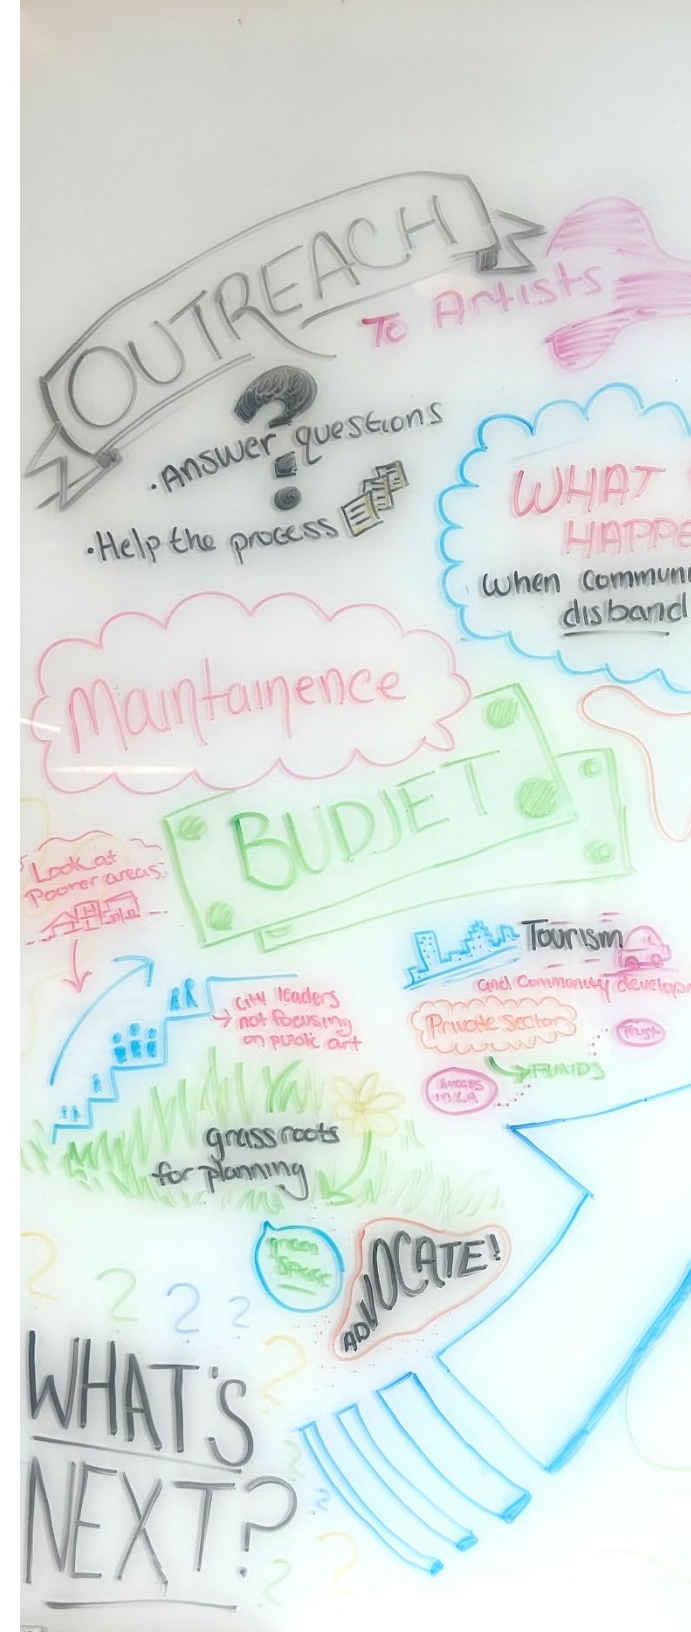 OUTREACH
To Artists
?
• Answer questions
• Help the process
WHAT
HAPPE
when communi
disband
Maintainence
BUDJET
Look at
Poorer areas
city leaders
not focusing
on public art
Tourism
and Community develop
Private Sector
Trust
FUNDS
Success
in LA
grass roots
for planning
green
space
ADVOCATE!
? ? ? ?
WHAT'S
NEXT?